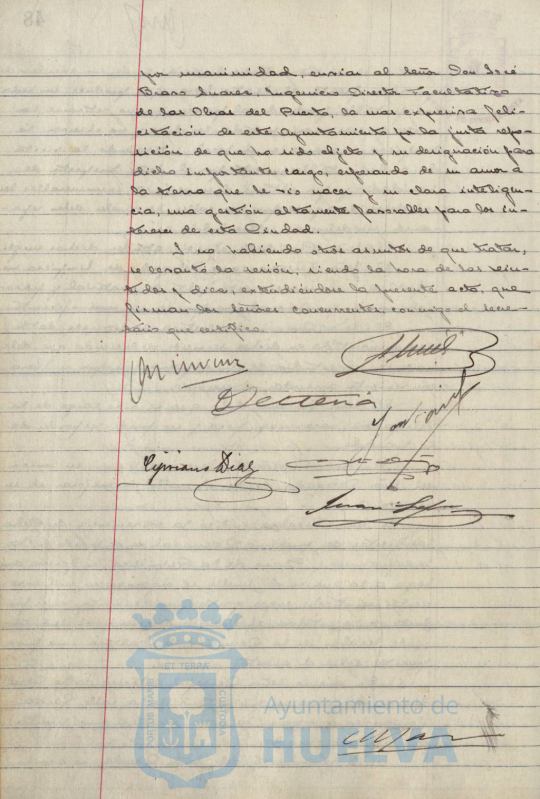 por unanimidad, enviar al Señor Don José
Bravo Suarez, Ingeniero Director Facultativo
de las Obras del Puerto, la mas expresiva feli-
citación de este Ayuntamiento por la justa repo-
sición de que ha sido objeto y su designación para
dicho importante cargo, esperando de su amor a
la tierra que le vio nacer y su clara inteligen-
cia, una gestión altamente favorables para los in-
tereses de esta Ciudad.
Y no habiendo otros asuntos de que tratar,
se levantó la sesión, siendo la hora de las vein-
tidos y diez, extendiéndose la presente acta, que
firman los Señores concurrentes, conmigo el secre-
tario que certifico.
Cipriano Diaz
Juan
48
PORTUS MARIS
ET TERRA
CUSTODIA
Ayuntamiento de
HUELVA